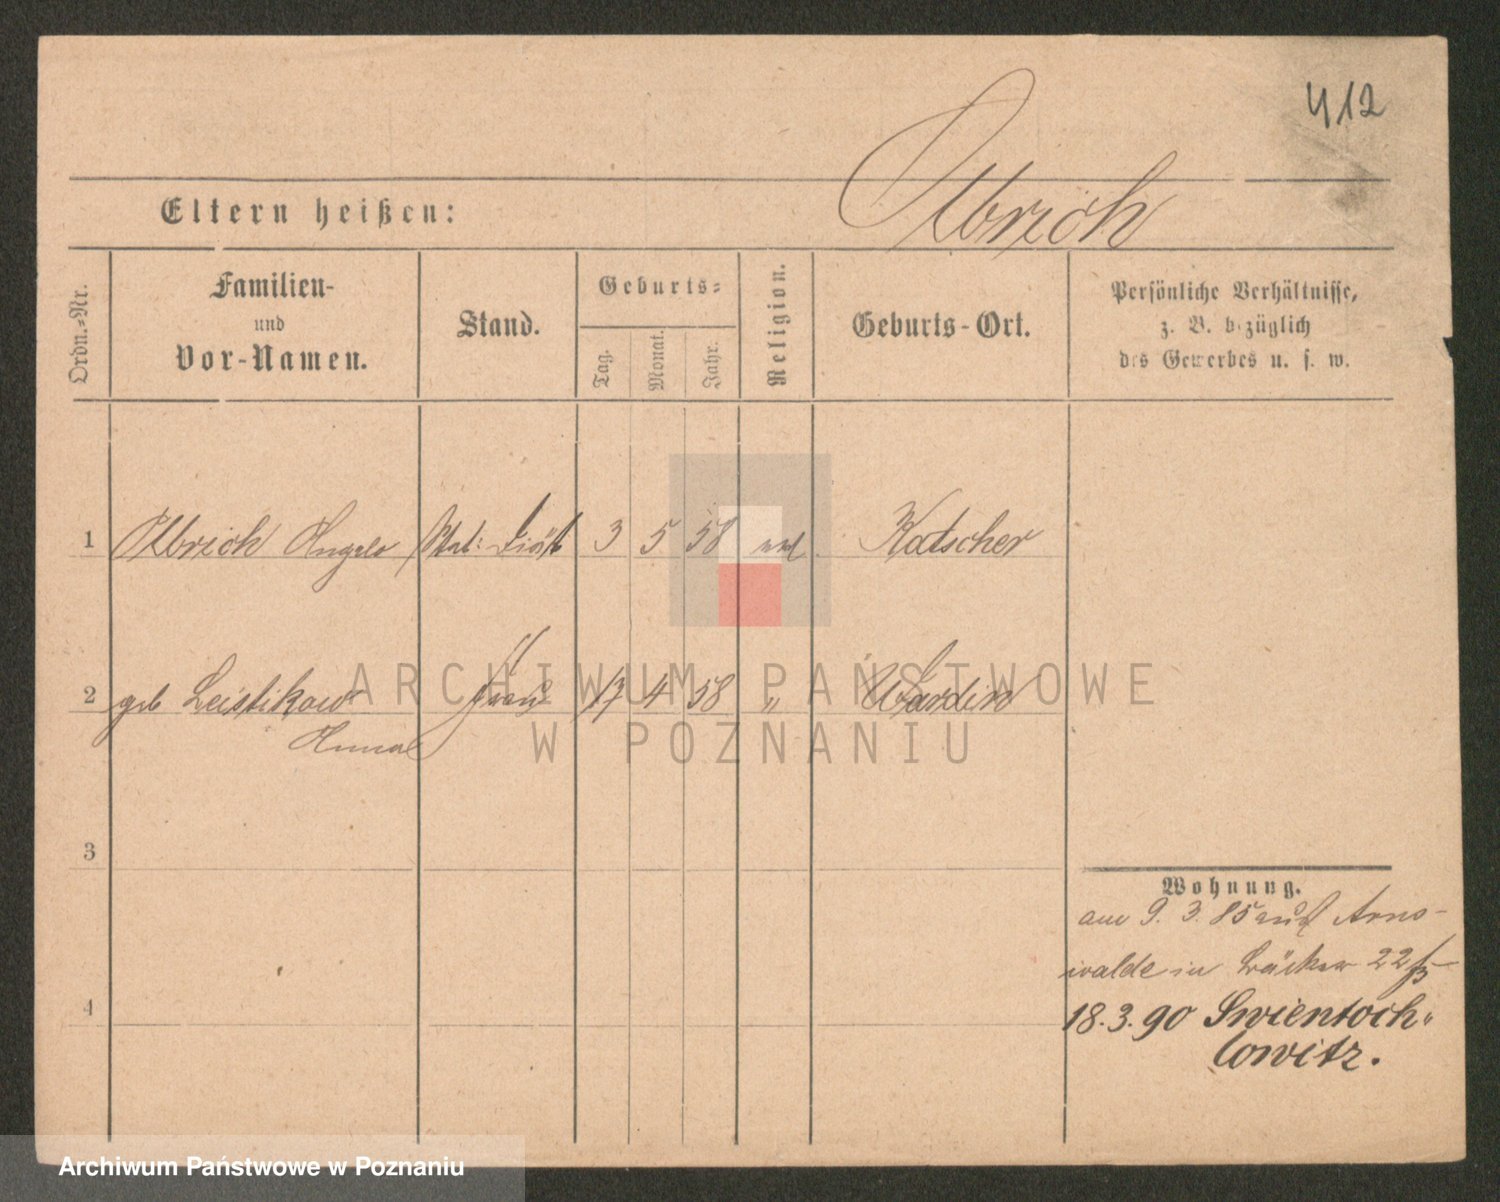 412
Eltern heißen:
Olbrich
Ordn.-Nr.
Familien-
und
Vor-Namen.
Stand.
Geburts-
Tag.
Monat.
Jahr.
Religion.
Geburts-Ort.
Persönliche Verhältnisse,
z. B. bezüglich
des Gewerbes u. s. w.
1 Olbrich Angelo Stat: Diät 3 5 58 Katscher
2 geb Leistikow Frau 17 4 58 " Wardin
Anna
3
4
Wohnung.
am 9. 3. 85 aus Arns-
walde in Bäcker 22
18.3.90 Swientoch-
lowitz.
ARCHIWUM PAŃSTWOWE
W POZNANIU
Archiwum Państwowe w Poznaniu